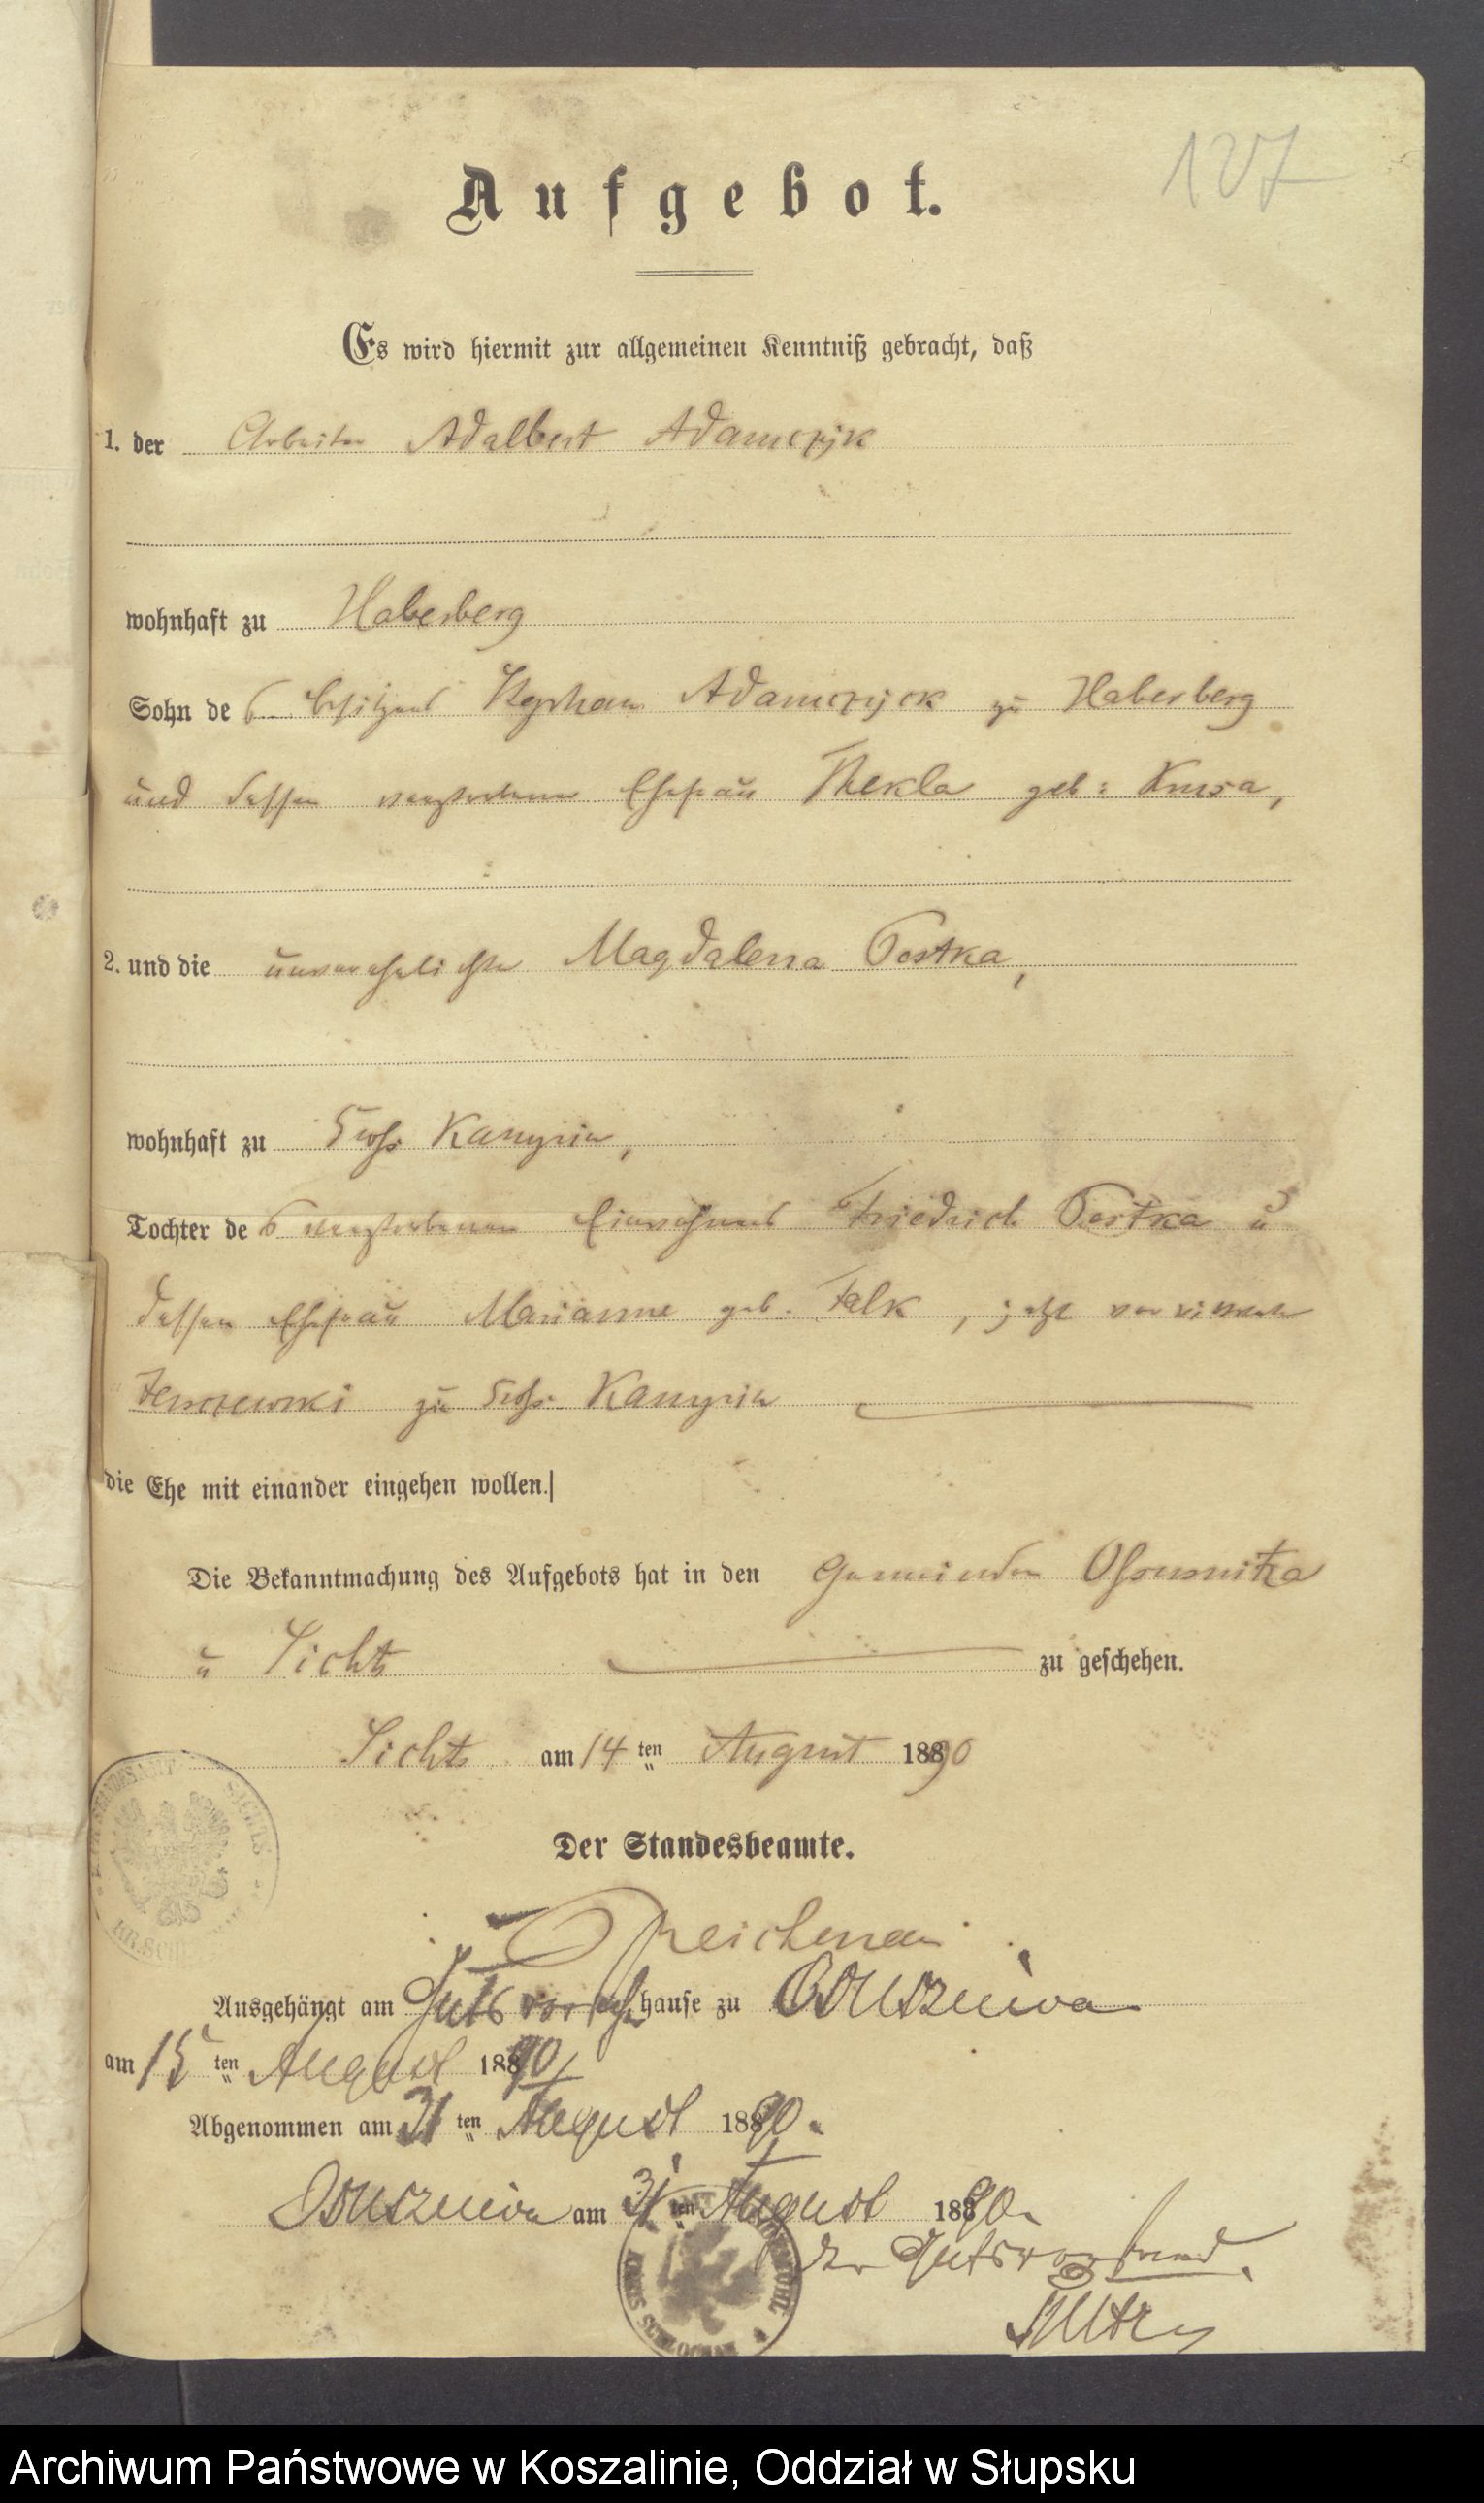 127
Aufgebot.
Es wird hiermit zur allgemeinen Kenntniß gebracht, daß
1. der Arbeiter Adalbert Adamczyk
wohnhaft zu Haberberg
Sohn des Besitzers Stephan Adamczyck zu Haberberg
und dessen verstorbenen Ehefrau Thekla geb:
2. und die unverehelichte Magdalena Postka,
wohnhaft zu Groß Konarzin,
Tochter des verstorbenen Einwohners Friedrich Postka u
dessen Ehefrau Marianne geb. Falk, jetzt verwittwete
zu Groß Konarzin
die Ehe mit einander eingehen wollen.
Die Bekanntmachung des Aufgebots hat in den Gemeinden Ossusnitza
u Sichts zu geschehen.
Sichts am 14 ten August 1890
Der Standesbeamte.
Ausgehängt am Gutsvorsteher hause zu Ossuszniva
am 15 ten August 1890
Abgenommen am 31 ten August 1890.
Ossuszniva am 31 ten August 1890.
Der Gutsvorstand.
KREIS SCHLOCHAU
Archiwum Państwowe w Koszalinie, Oddział w Słupsku